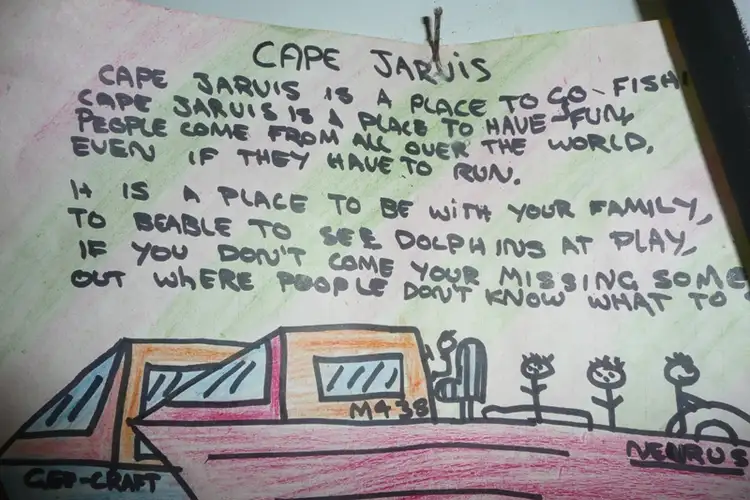 CAPE JARVIS
CAPE JARVIS IS A PLACE TO GO-FISHI
CAPE JARVIS IS A PLACE TO HAVE FUN,
PEOPLE COME FROM ALL OVER THE WORLD,
EVEN IF THEY HAVE TO RUN.
It IS A PLACE TO BE WITH YOUR FAMILY,
TO BEABLE TO SEE DOLPHINS AT PLAY,
IF YOU DON'T COME YOUR MISSING SOME
OUT WHERE PEOPLE DON'T KNOW WHAT TO
M438
NENRUS
GEP-CRAFT